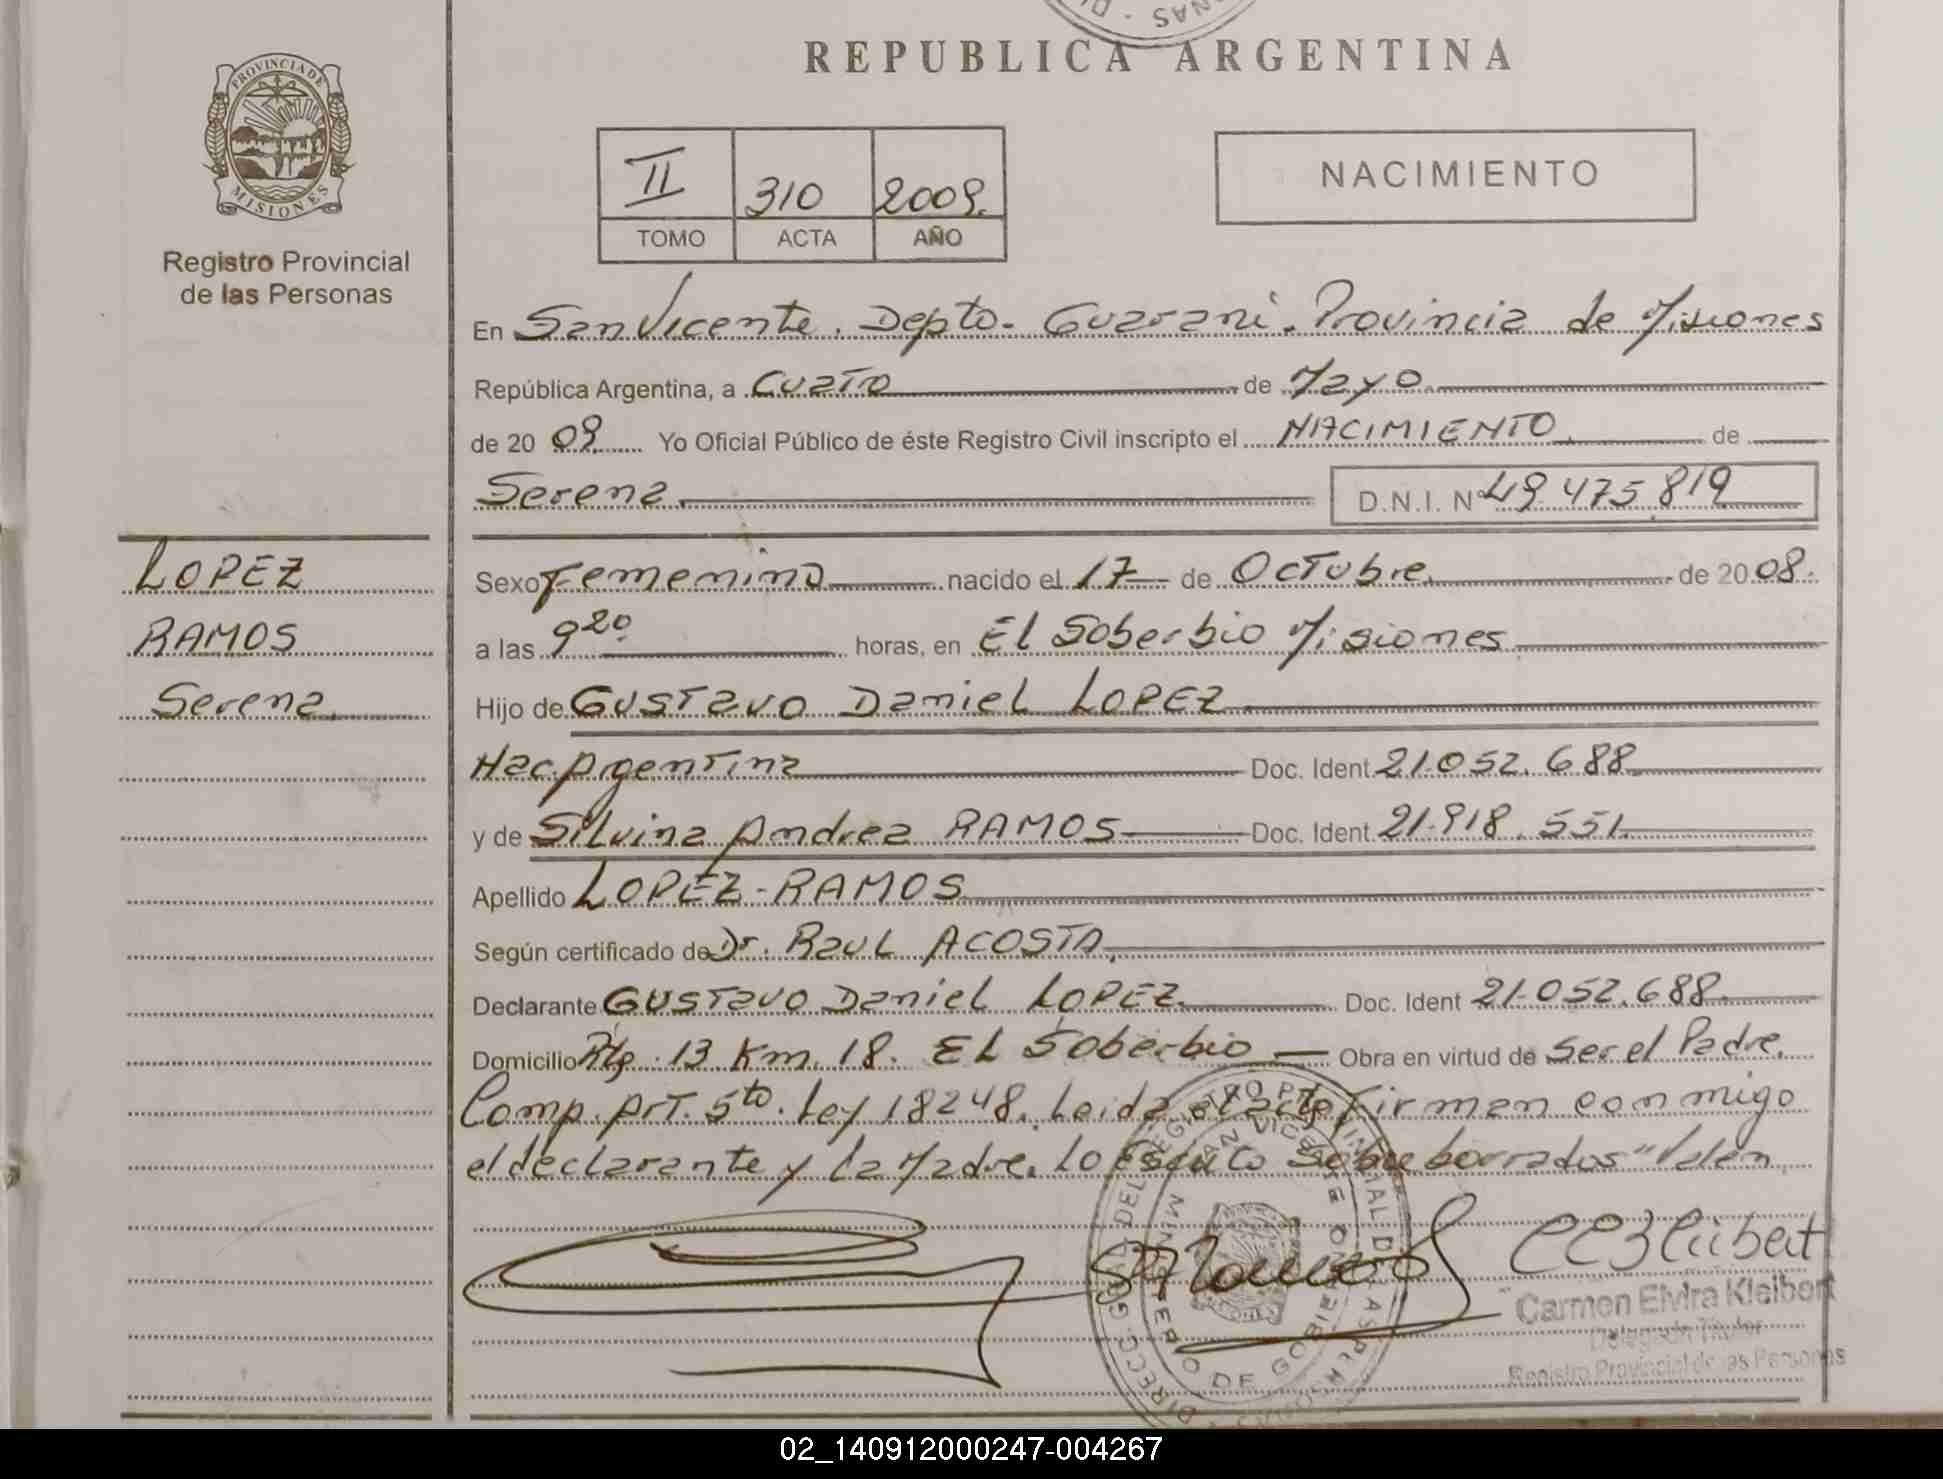 REPUBLICA ARGENTINA
PROVINCIA DE
MISIONES
Registro Provincial
de las Personas
II 310 2009.
TOMO ACTA AÑO
NACIMIENTO
En San Vicente. Depto. Guarani. Provincia de Misiones
República Argentina, a Cuatro de Mayo
de 20 09. Yo Oficial Público de éste Registro Civil inscripto el NACIMIENTO de
Serena. D.N.I. Nº 49.475.819
LOPEZ
RAMOS
Serena.
Sexo Femenino nacido el 17 de Octubre de 20 08.
a las 9 20 horas, en El Soberbio Misiones
Hijo de Gustavo Daniel LOPEZ
Nac. Argentina Doc. Ident 21.052.688
y de Silvina Andrea RAMOS Doc. Ident 21.918.551
Apellido LOPEZ-RAMOS
Según certificado de Dr. Raul ACOSTA.
Declarante Gustavo Daniel LOPEZ. Doc. Ident 21.052.688
Domicilio 13 Km. 18. El Soberbio Obra en virtud de Ser el Padre.
Comp. Art. 5to. Ley 18248. Leida el acta firman conmigo
el declarante y la Madre. Lo Escrito Sobre borrados" Valen
Carmen Elvira Kleibert
Delegada Titular
Registro Provincial de las Personas
02_140912000247-004267